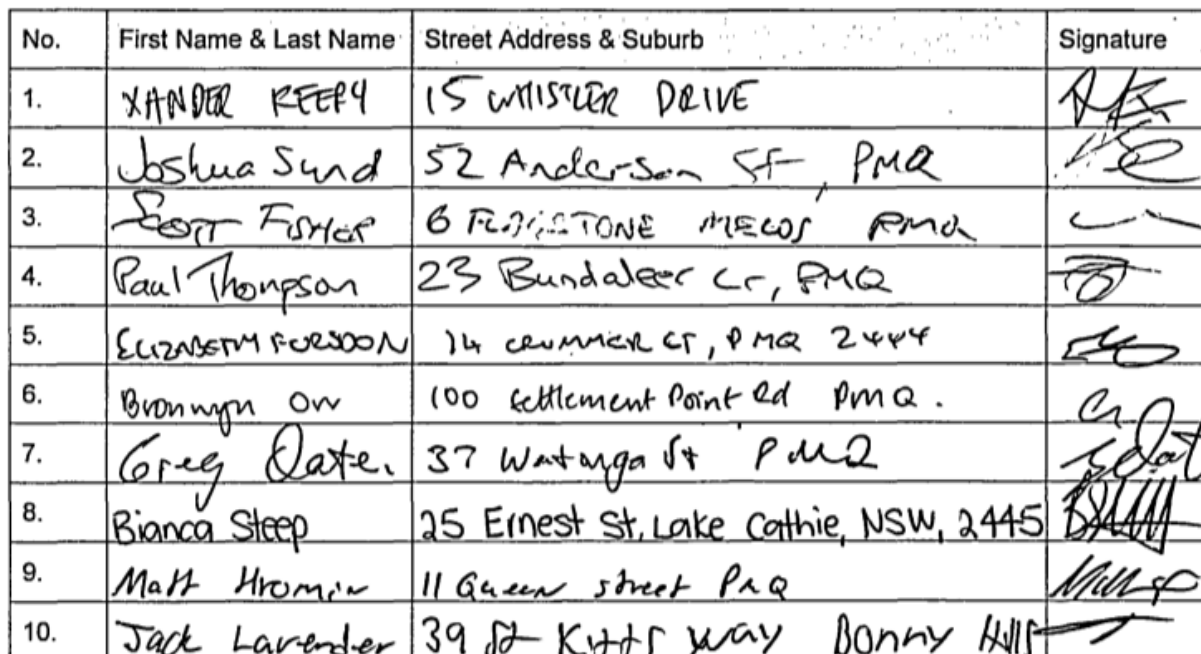 No. First Name & Last Name Street Address & Suburb Signature
1. XANDER 15 WHISTLER DRIVE
2. Joshua Sund 52 Anderson St, PMQ
3. SCOTT FISHER 6 PMQ
4. Paul Thompson 23 Bundaleer Cr, PMQ
5. ELIZABETH 14 CRUMMER CT, PMQ 2444
6. Bronwyn Orr 100 Settlement Point Rd PMQ.
7. Greg 37 Watonga St PMQ
8. Bianca Steep 25 Ernest St, Lake Cathie, NSW, 2445
9. Matt 11 Queen street PMQ
10. Jack Lavender 39 St Kitts Way Bonny Hills